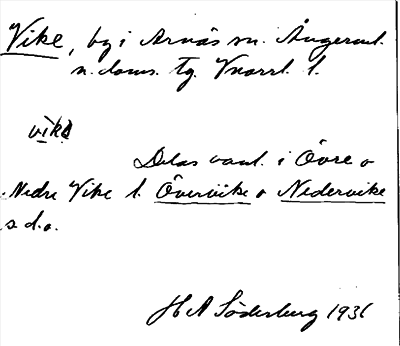 Vike, by i Arnäs sn. Ångerml.
n. doms. tg. Vnorrl. l.
vikə
Delas vanl. i Övre o
Nedre Vike l. Övervike o Nedervike
s. d. o.
H A Söderberg 1931